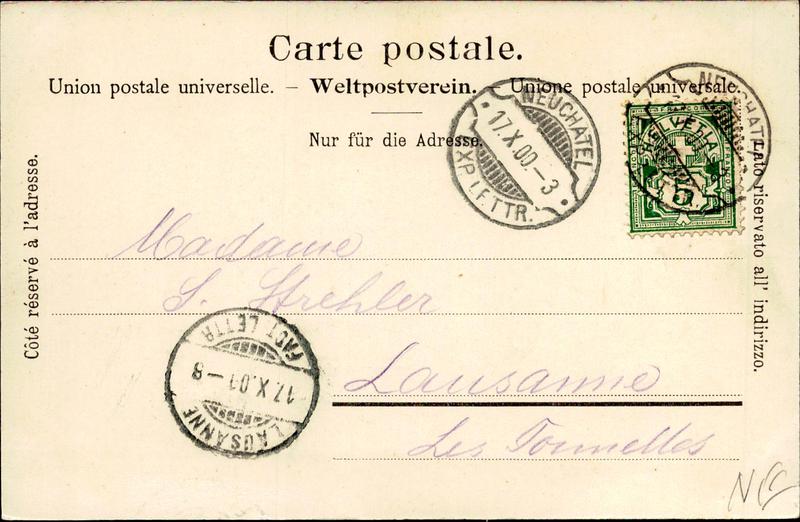 Carte postale.
Union postale universelle. – Weltpostverein. – Unione postale universale.
Nur für die Adresse.
NEUCHATEL
17.X.00.–3
EXP. LETTR.
NEUCHATEL
HELVETIA
5
Côté réservé à l'adresse.
Lato riservato all' indirizzo.
Madame
S. Strehler
FACT. LETTR.
17.X.00–8
LAUSANNE
Lausanne
Les Tonnelles